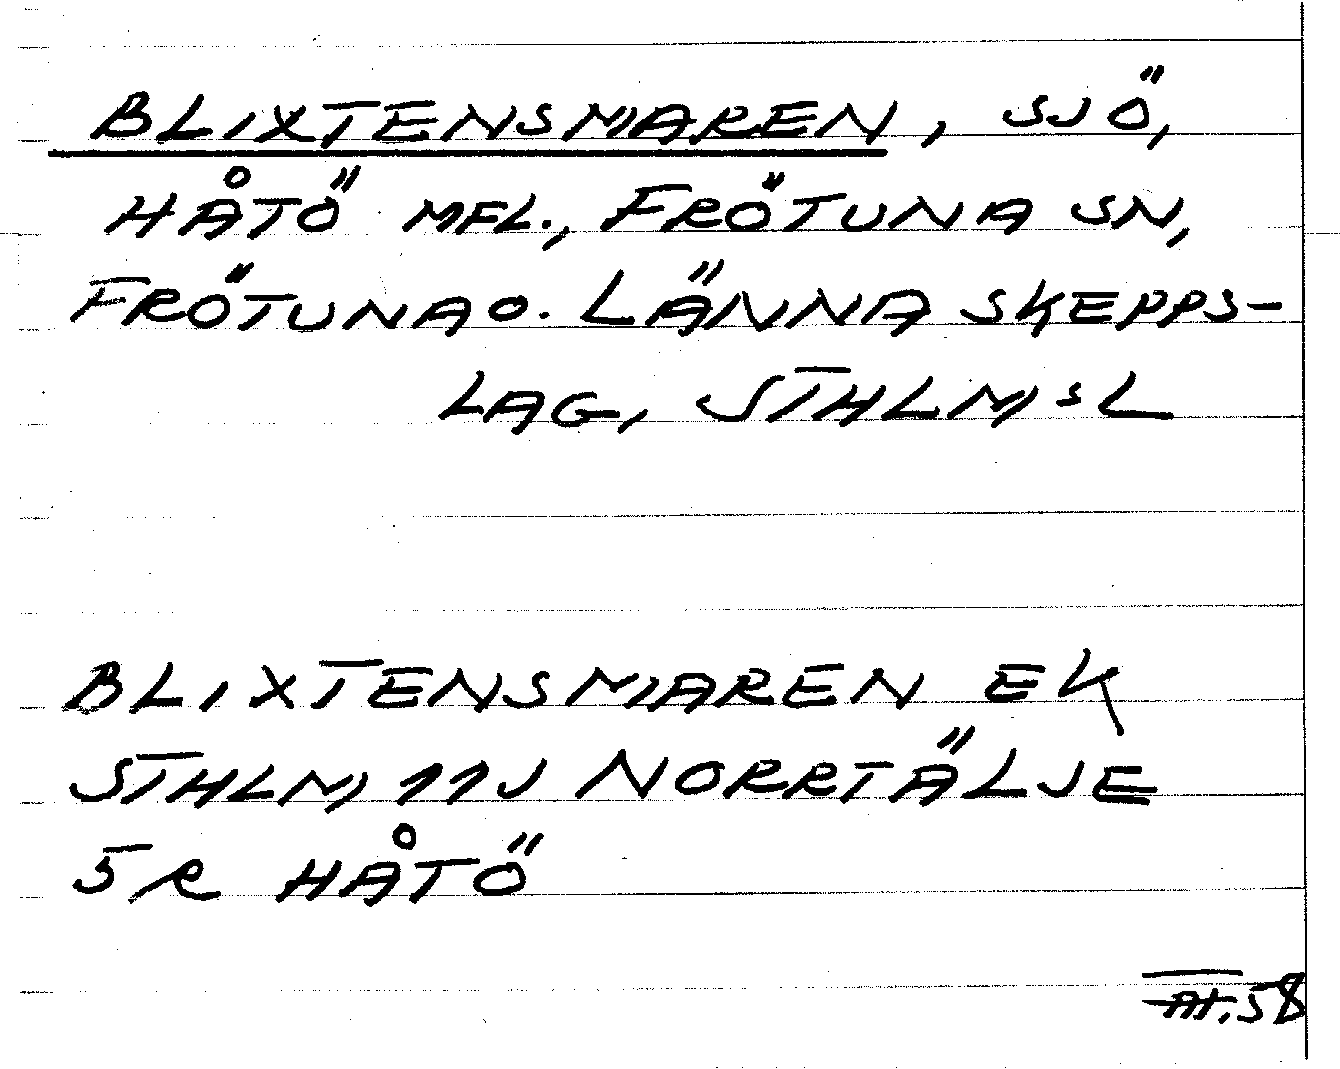 BLIXTENSMAREN, SJÖ,
HÅTÖ MFL., FRÖTUNA SN,
FRÖTUNA O. LÄNNA SKEPPS-
LAG, STHLM:S L
BLIXTENSMAREN EK
STHLM, 11J NORRTÄLJE
5R HÅTÖ
58